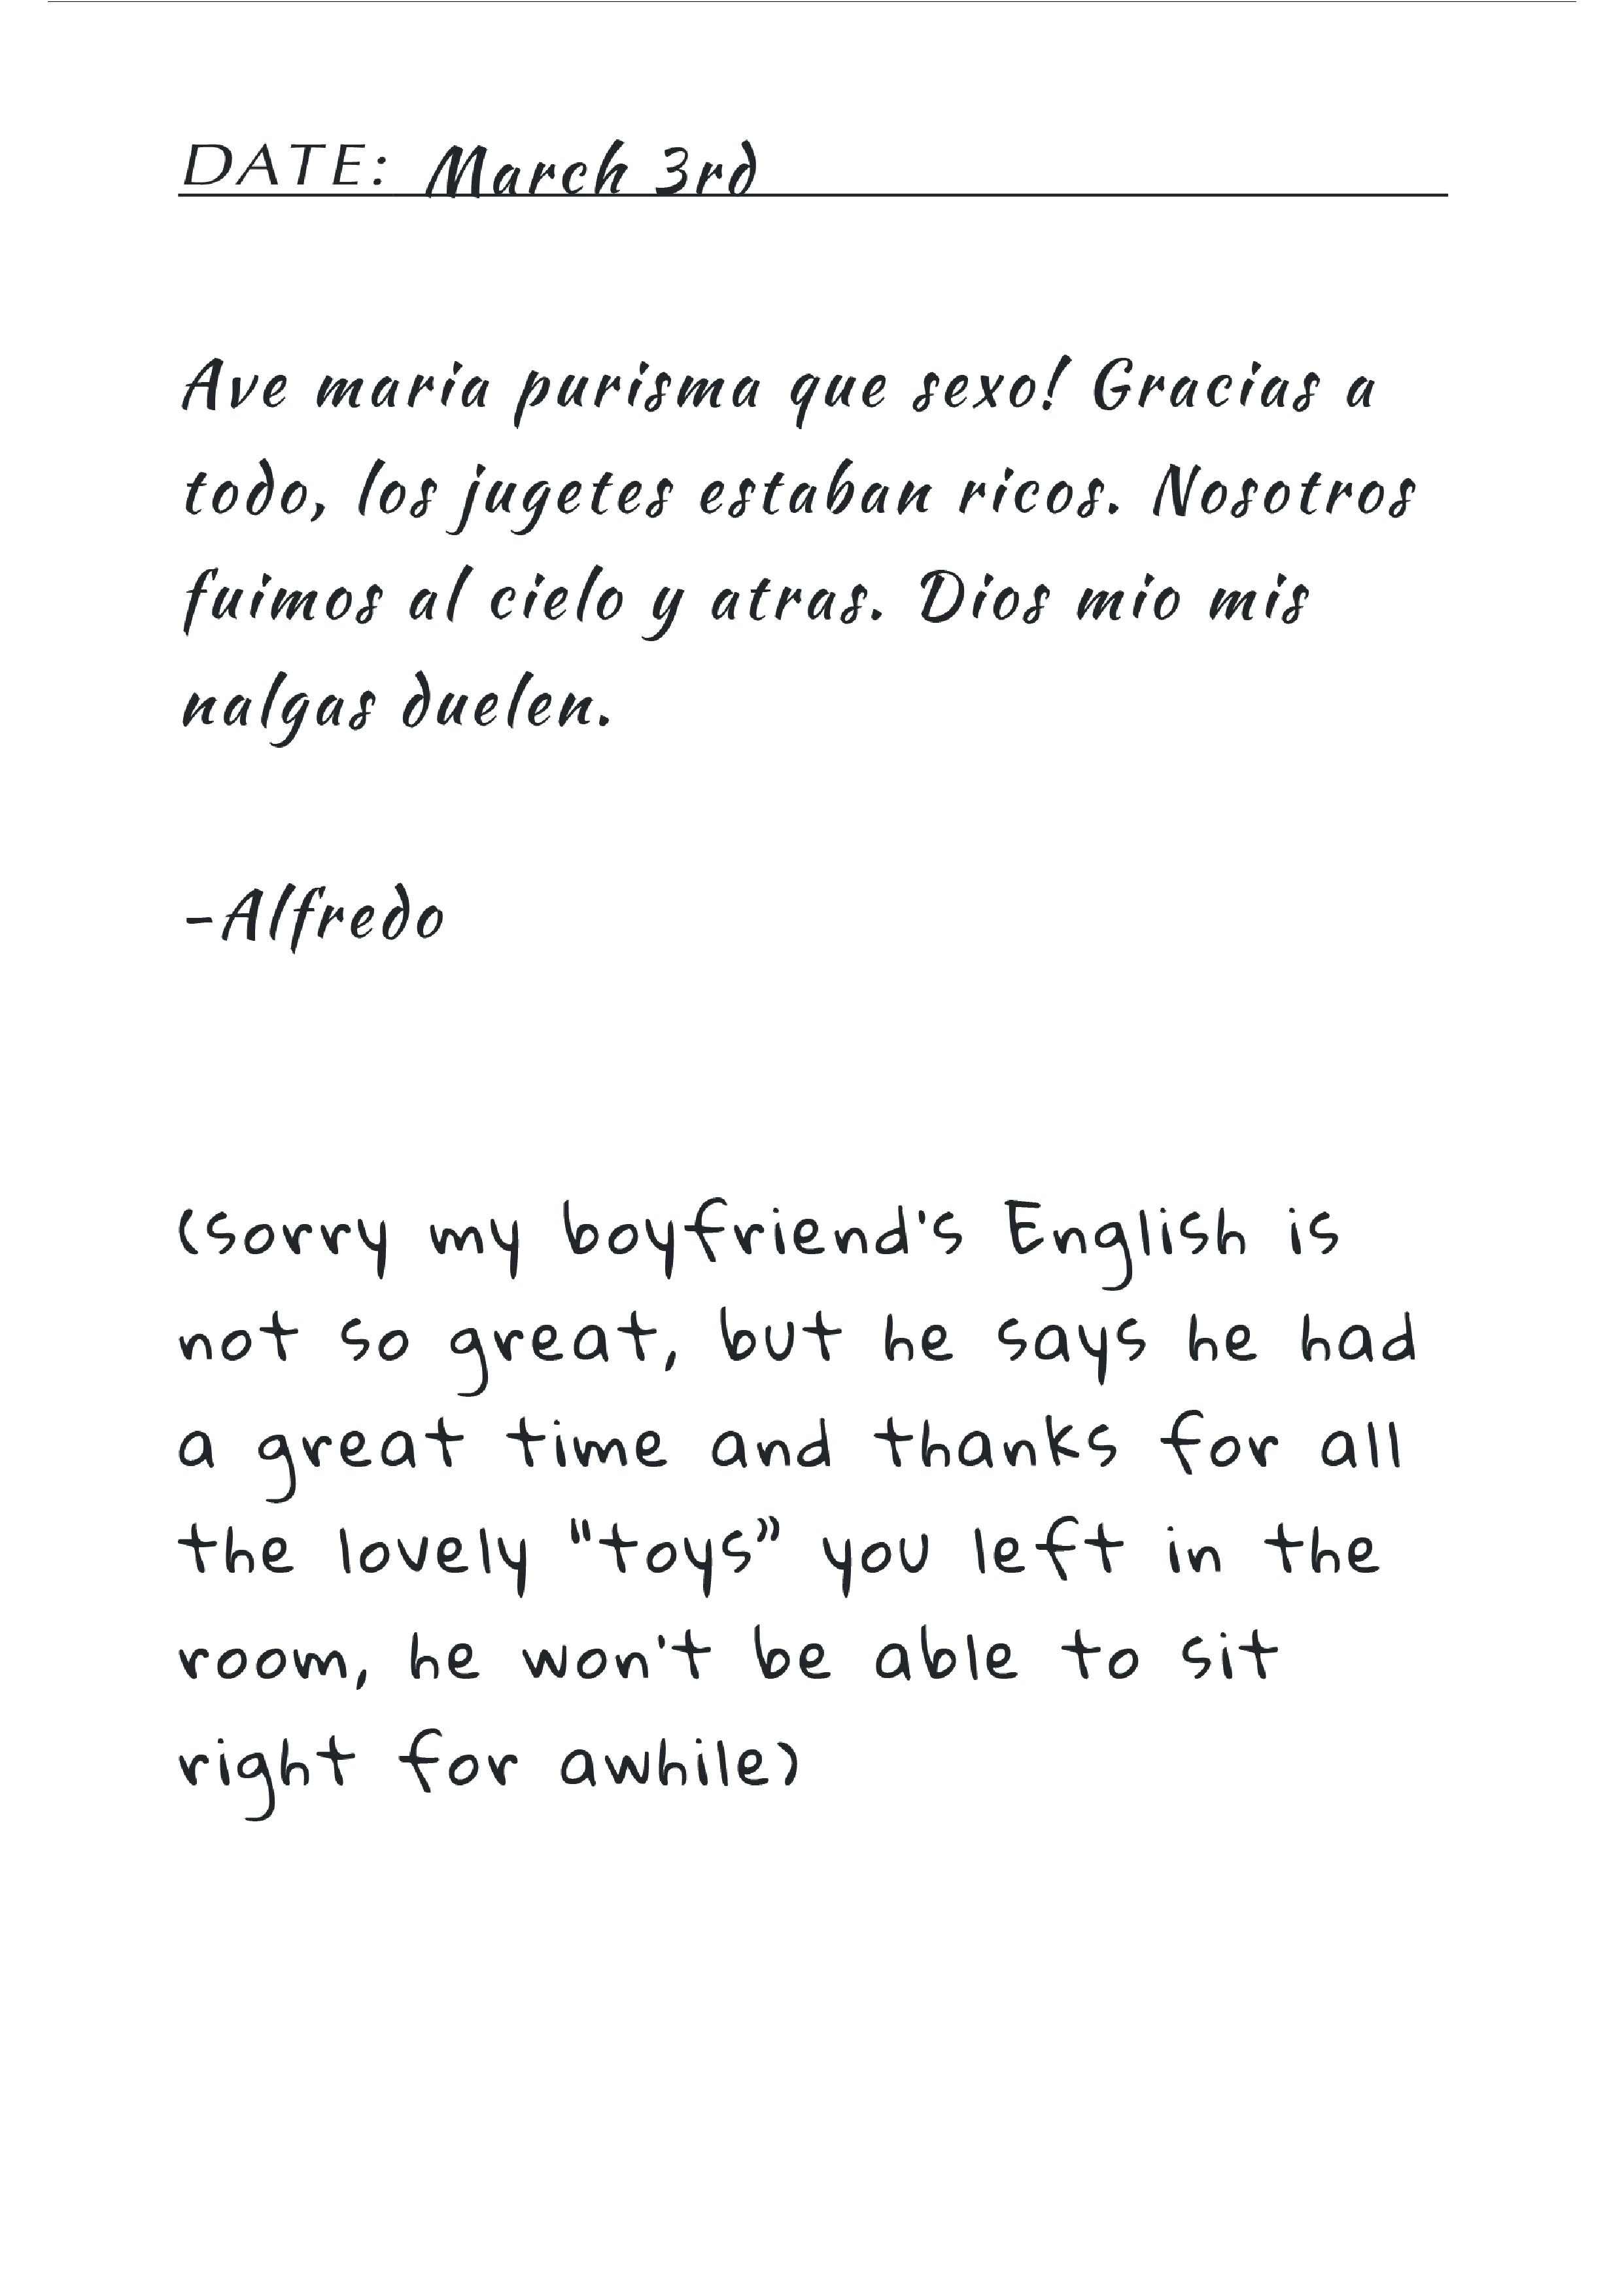 DATE: March 3rd
Ave maria purisma que sexo! Gracias a
todo, los jugetes estaban ricos. Nosotros
fuimos al cielo y atras. Dios mio mis
nalgas duelen.
-Alfredo
(sorry my boyfriend's English is
not so great, but he says he had
a great time and thanks for all
the lovely "toys" you left in the
room, he won't be able to sit
right for awhile)